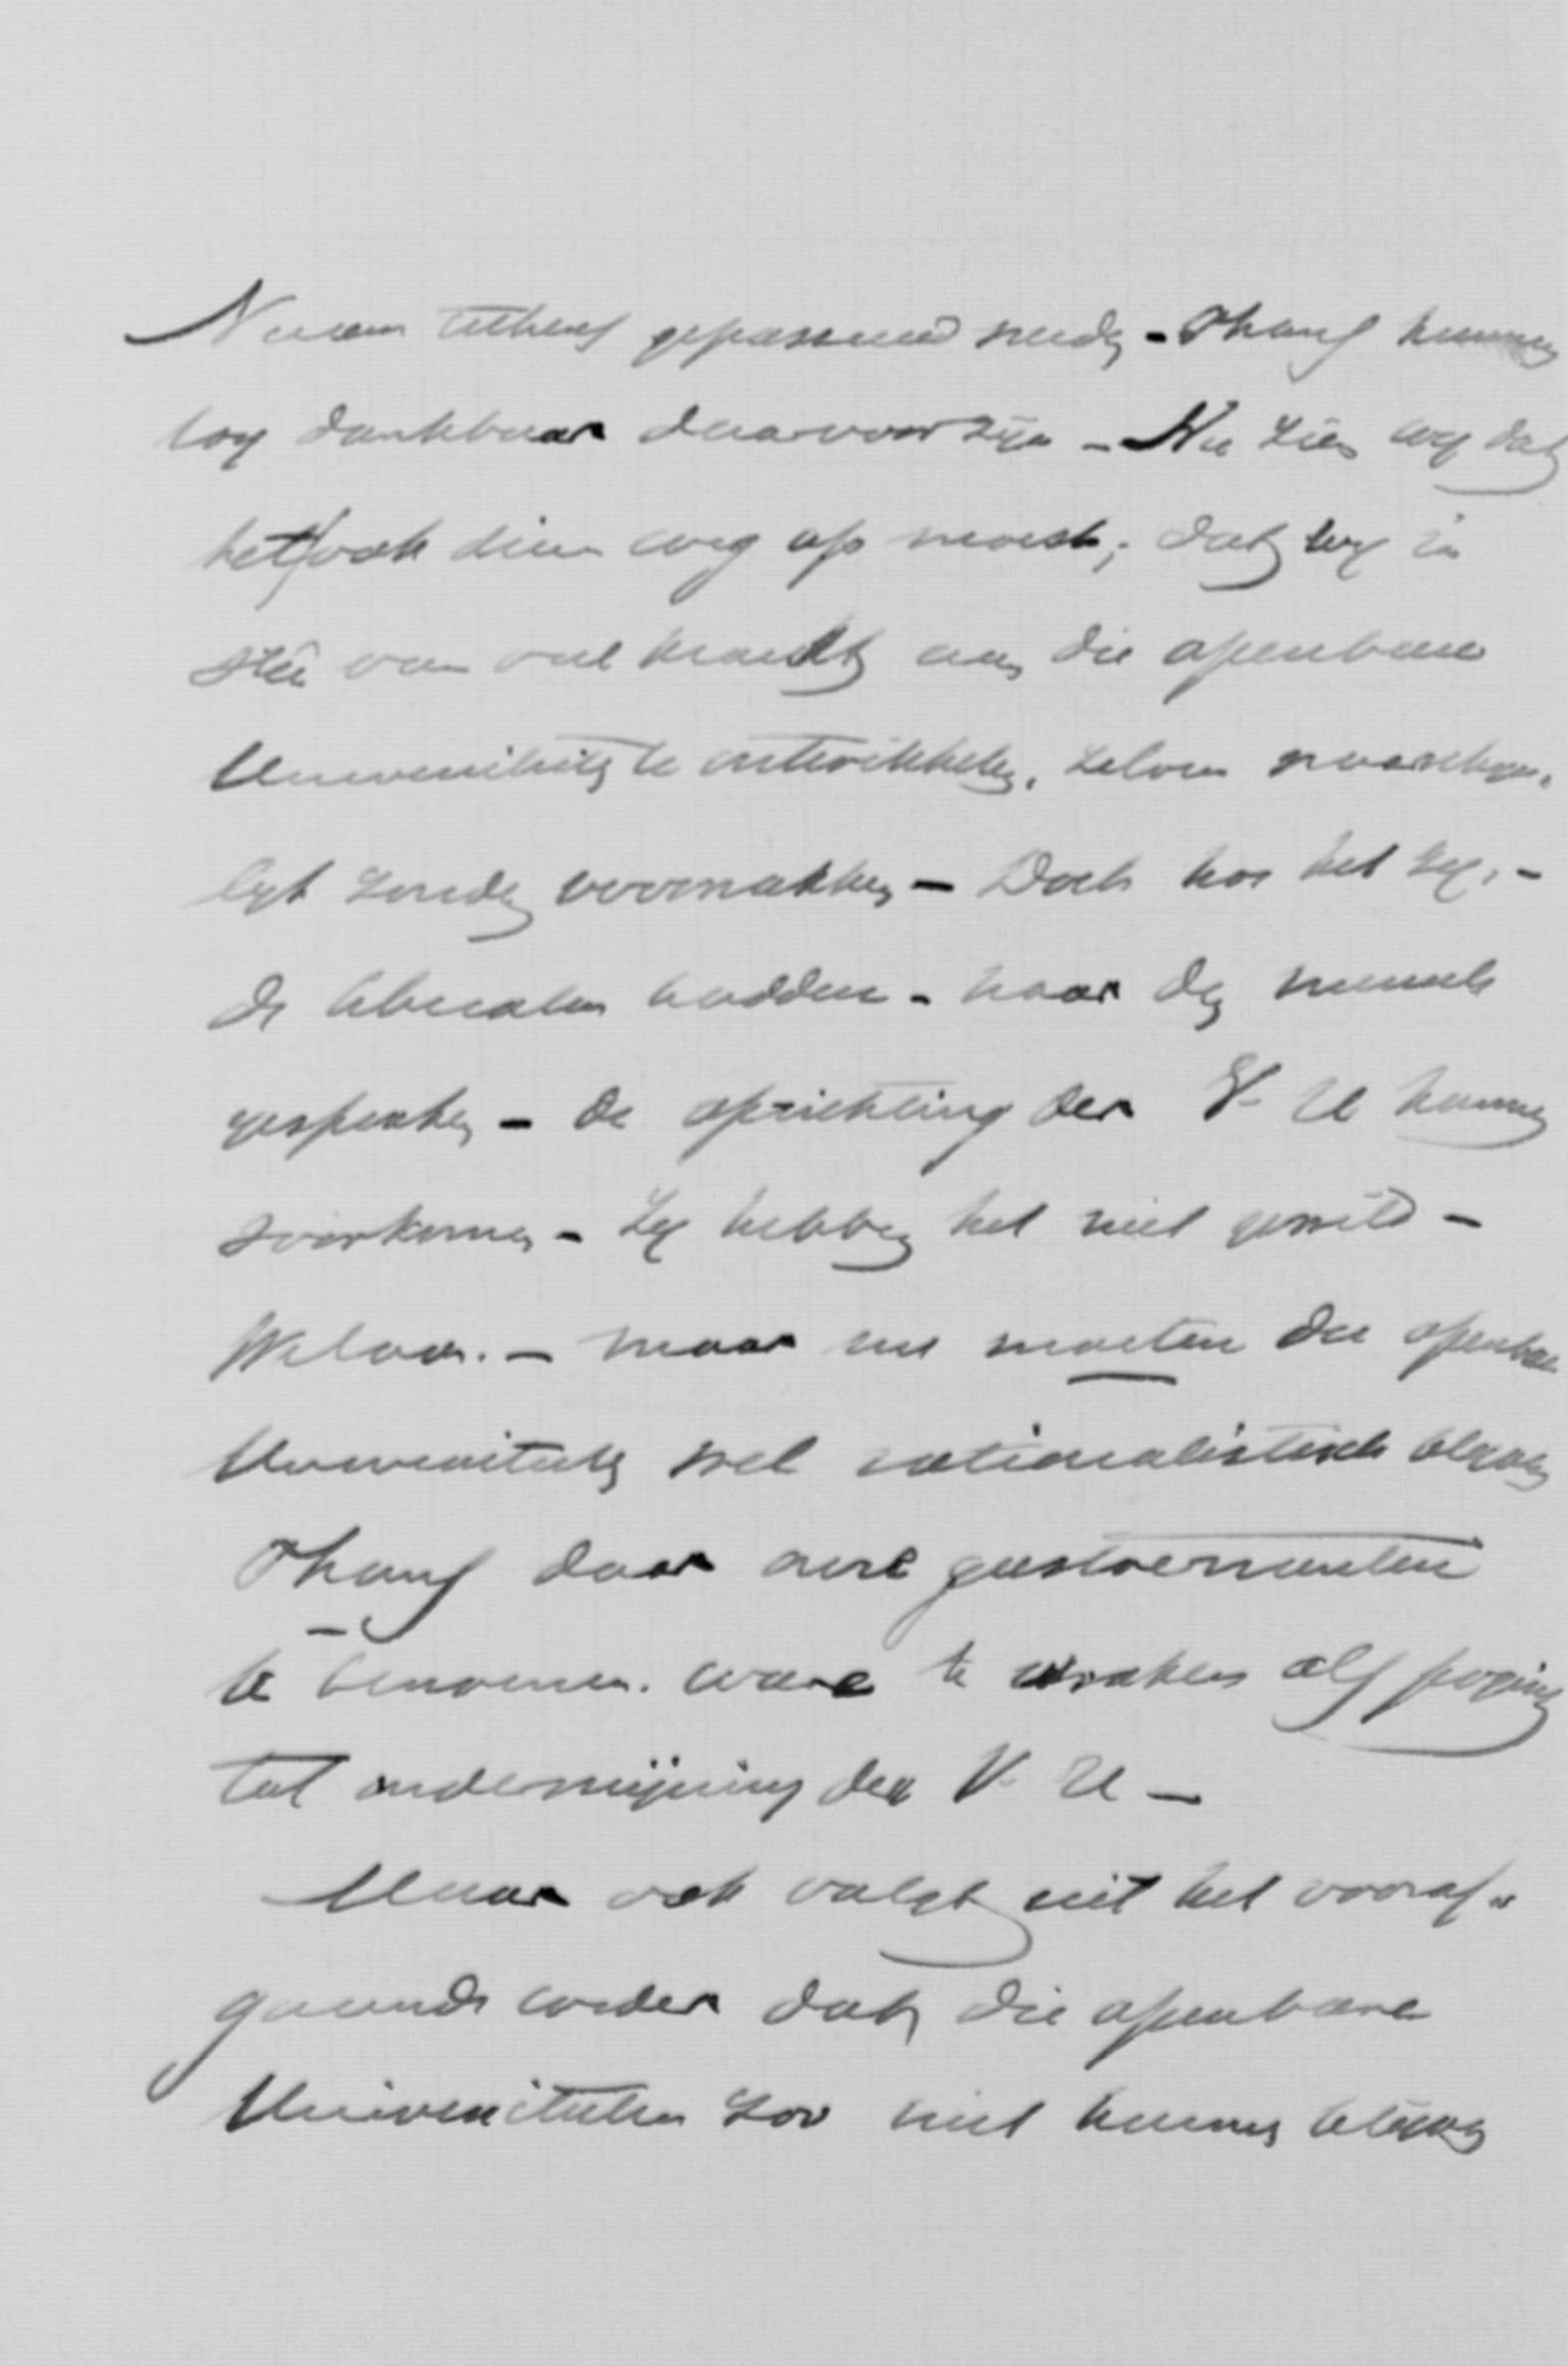 telkens gepasseerd werden - Thans kunnen
wij dankbaar daarvoor zijn - Nu zien wij dat
het ook dien weg op moest; dat wij in
steê van veel kracht aan die openbare
Universiteit te ontwikkelen, zelven
zouden verzwakken - Doch hoe het zij, -
de liberalen hadden - naar den mensch
gesproken - de oprichting der V. U kunnen
voorkomen - Zij hebben het niet gewild -
Welaan. - maar nu moeten die openbare
Universiteiten wel rationalistisch blijven
Thans daar onze geestverwanten
te benoemen. ware te wraken als poging
tot ondermijning der V. U -
Maar ook volgt uit het vooraf-
gaande verder dat die openbare
Universiteiten zoo niet kunnen blijven